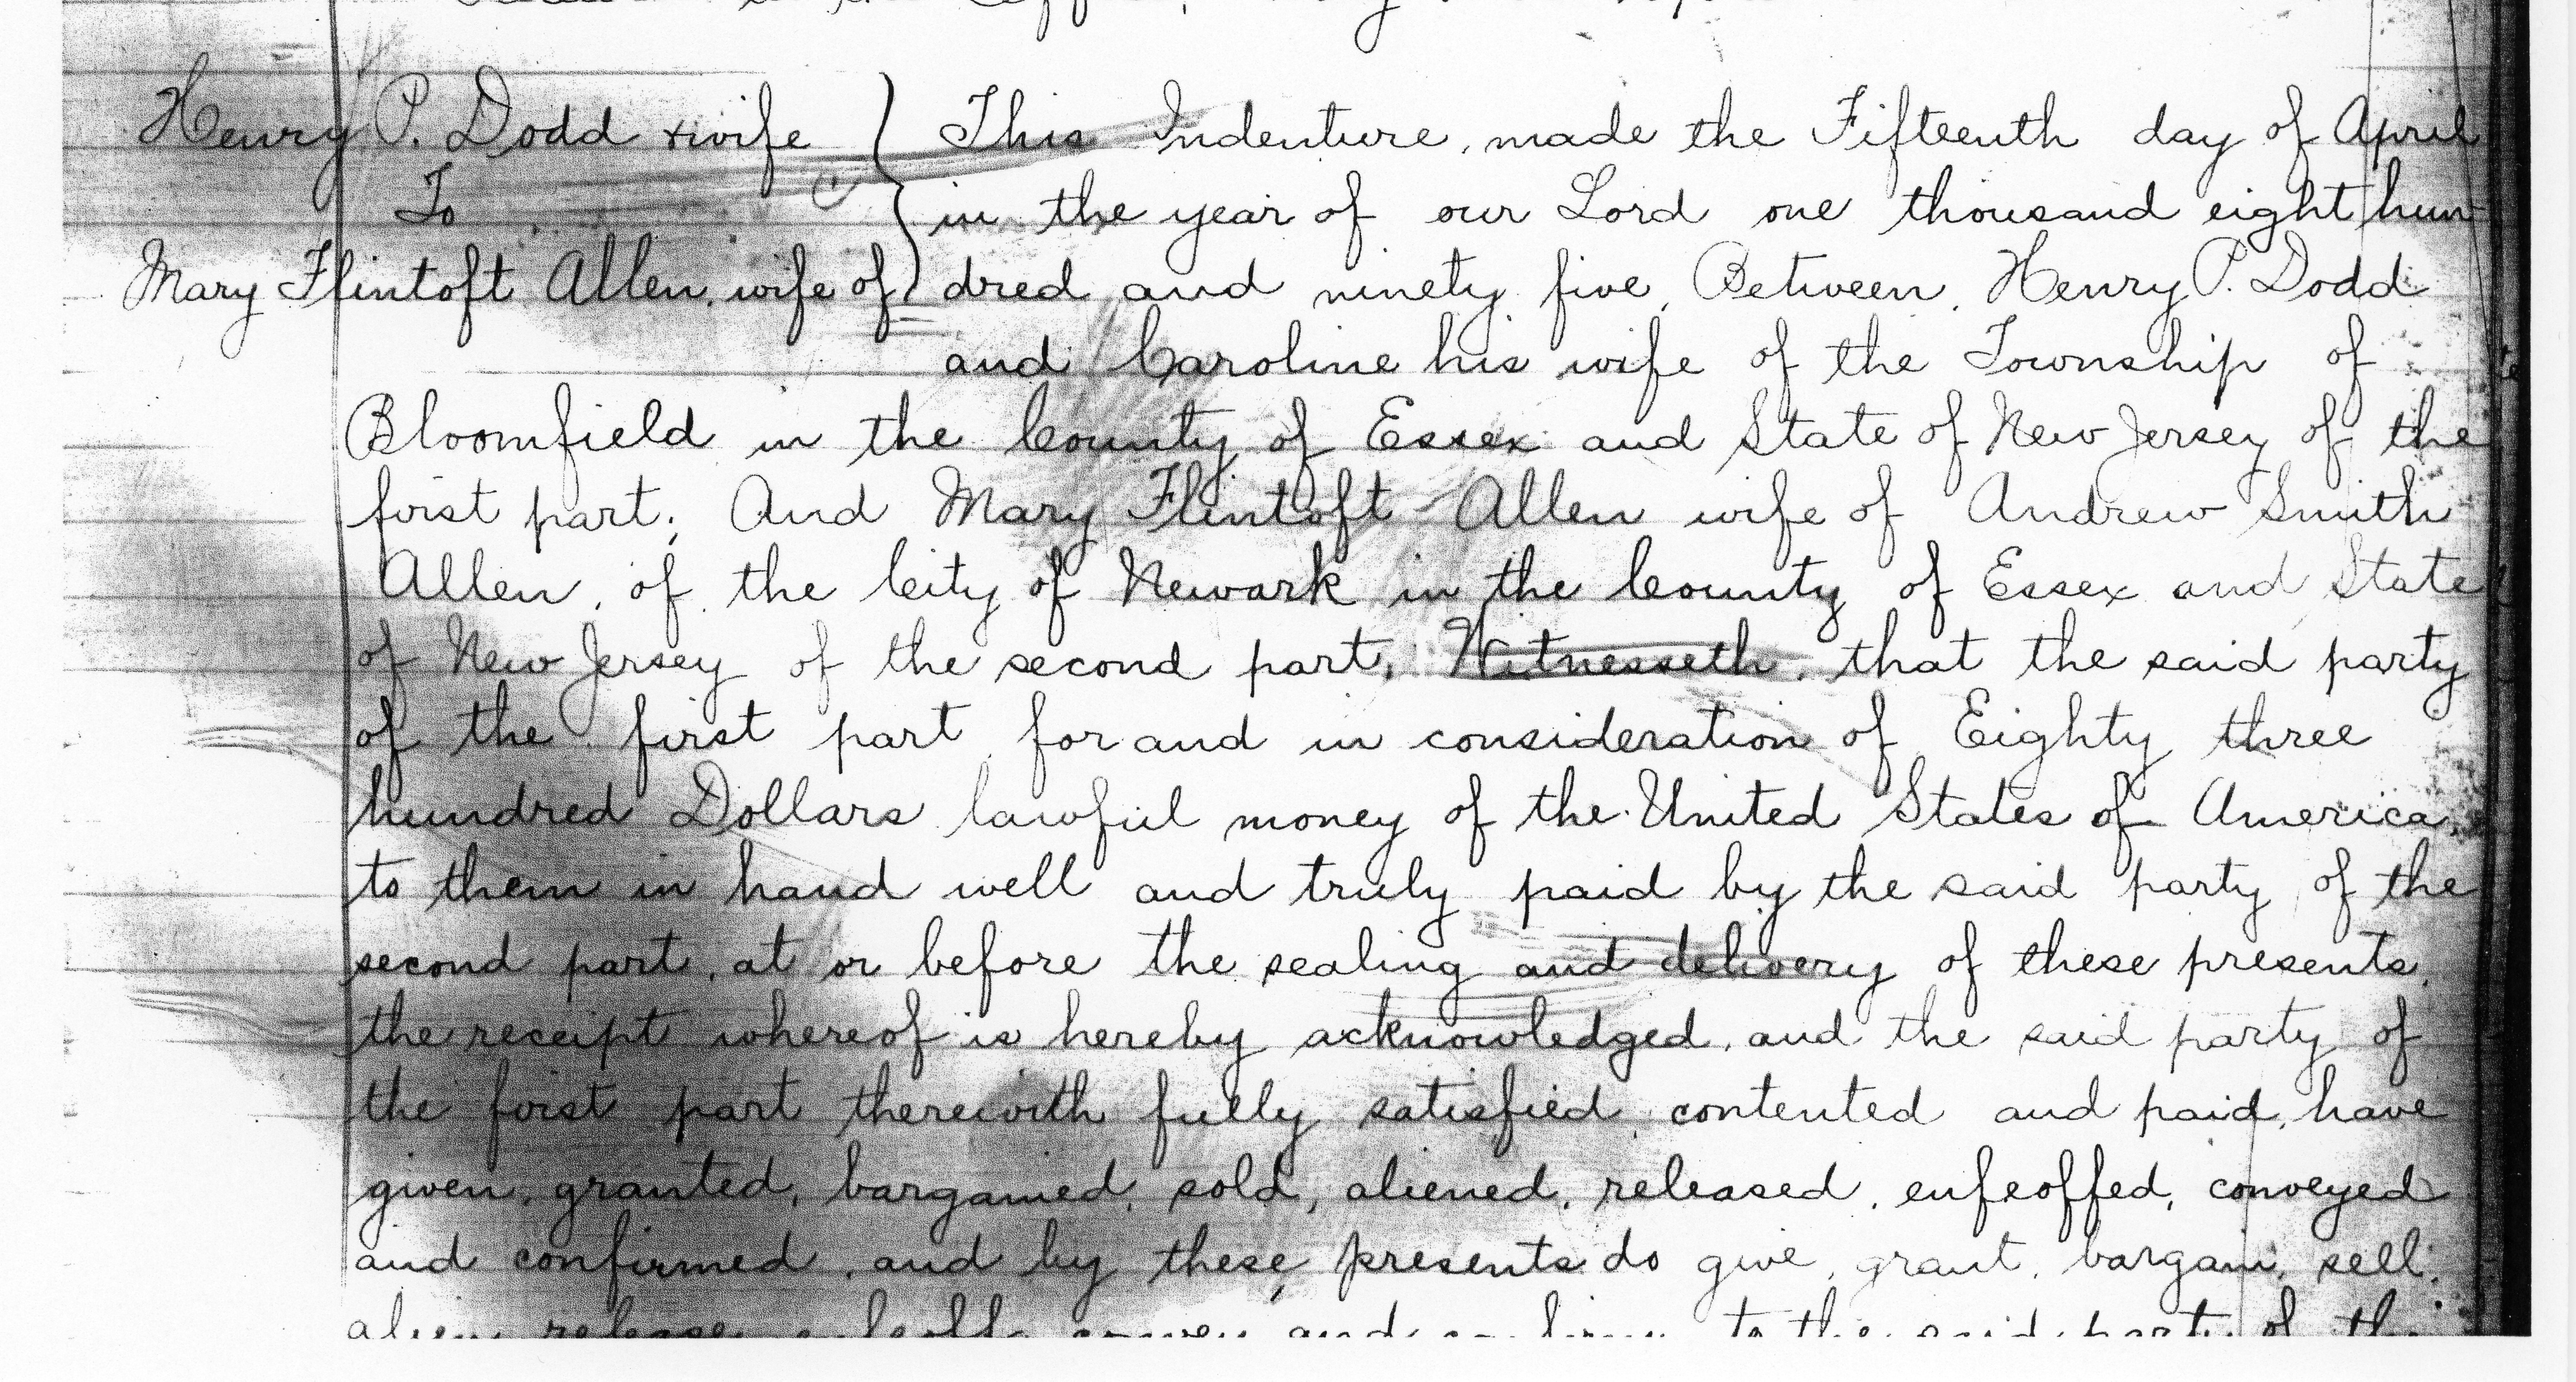 Henry P. Dodd & wife
To
Mary Flintoft Allen, wife of
This Indenture, made the Fifteenth day of April
in the year of our Lord one thousand eight hun-
dred and ninety five, Between, Henry P. Dodd
and Caroline his wife of the Township of
Bloomfield in the County of Essex and State of New Jersey of the
first part; And Mary Flintoft Allen wife of Andrew Smith
Allen, of the City of Newark in the County of Essex and State
of New Jersey of the second part, Witnesseth, that the said party
of the first part, for and in consideration of Eighty three
hundred Dollars lawful money of the United States of America,
to them in hand well and truly paid by the said party of the
second part, at or before the sealing and delivery of these presents,
the receipt whereof is hereby acknowledged, and the said party of
the first part therewith fully satisfied, contented and paid, have
given, granted, bargained, sold, aliened, released, enfeoffed, conveyed
and confirmed, and by these presents do give, grant, bargain, sell,
to the said party of the